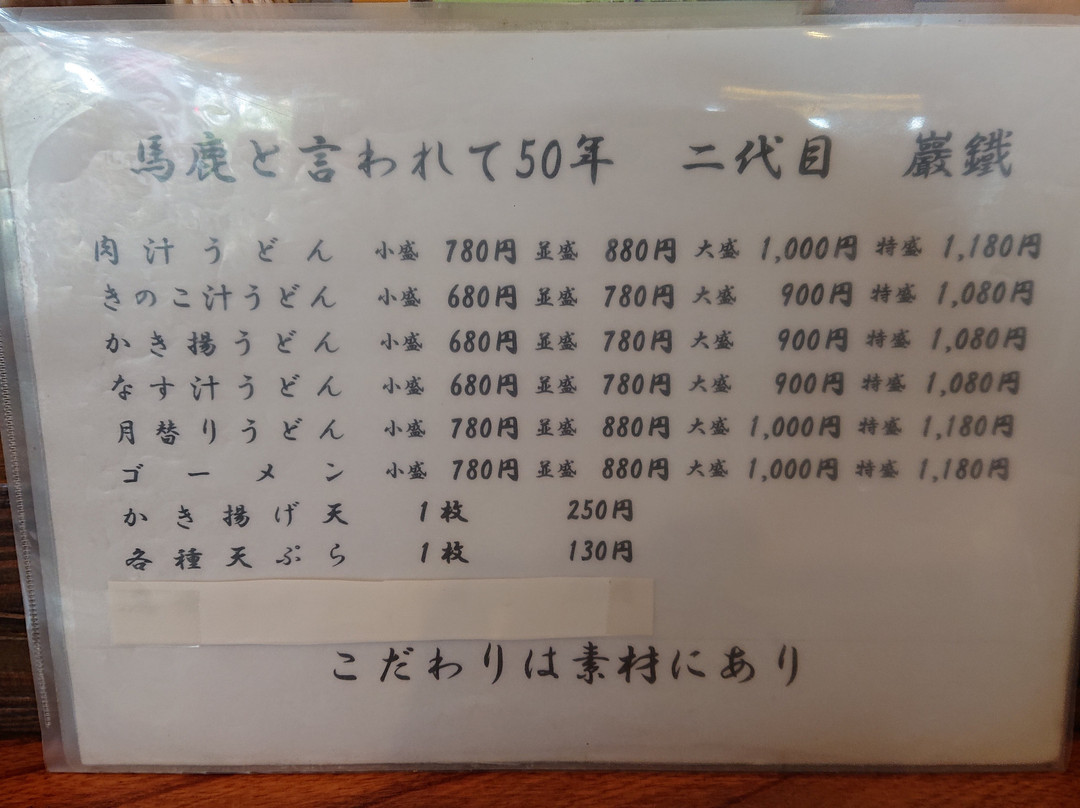 馬鹿と言われて50年 二代目 巖鐵
肉汁うどん 小盛 780円 並盛 880円 大盛 1,000円 特盛 1,180円
きのこ汁うどん 小盛 680円 並盛 780円 大盛 900円 特盛 1,080円
かき揚うどん 小盛 680円 並盛 780円 大盛 900円 特盛 1,080円
なす汁うどん 小盛 680円 並盛 780円 大盛 900円 特盛 1,080円
月替りうどん 小盛 780円 並盛 880円 大盛 1,000円 特盛 1,180円
ゴーメン 小盛 780円 並盛 880円 大盛 1,000円 特盛 1,180円
かき揚げ天 1枚 250円
各種天ぷら 1枚 130円
こだわりは素材にあり